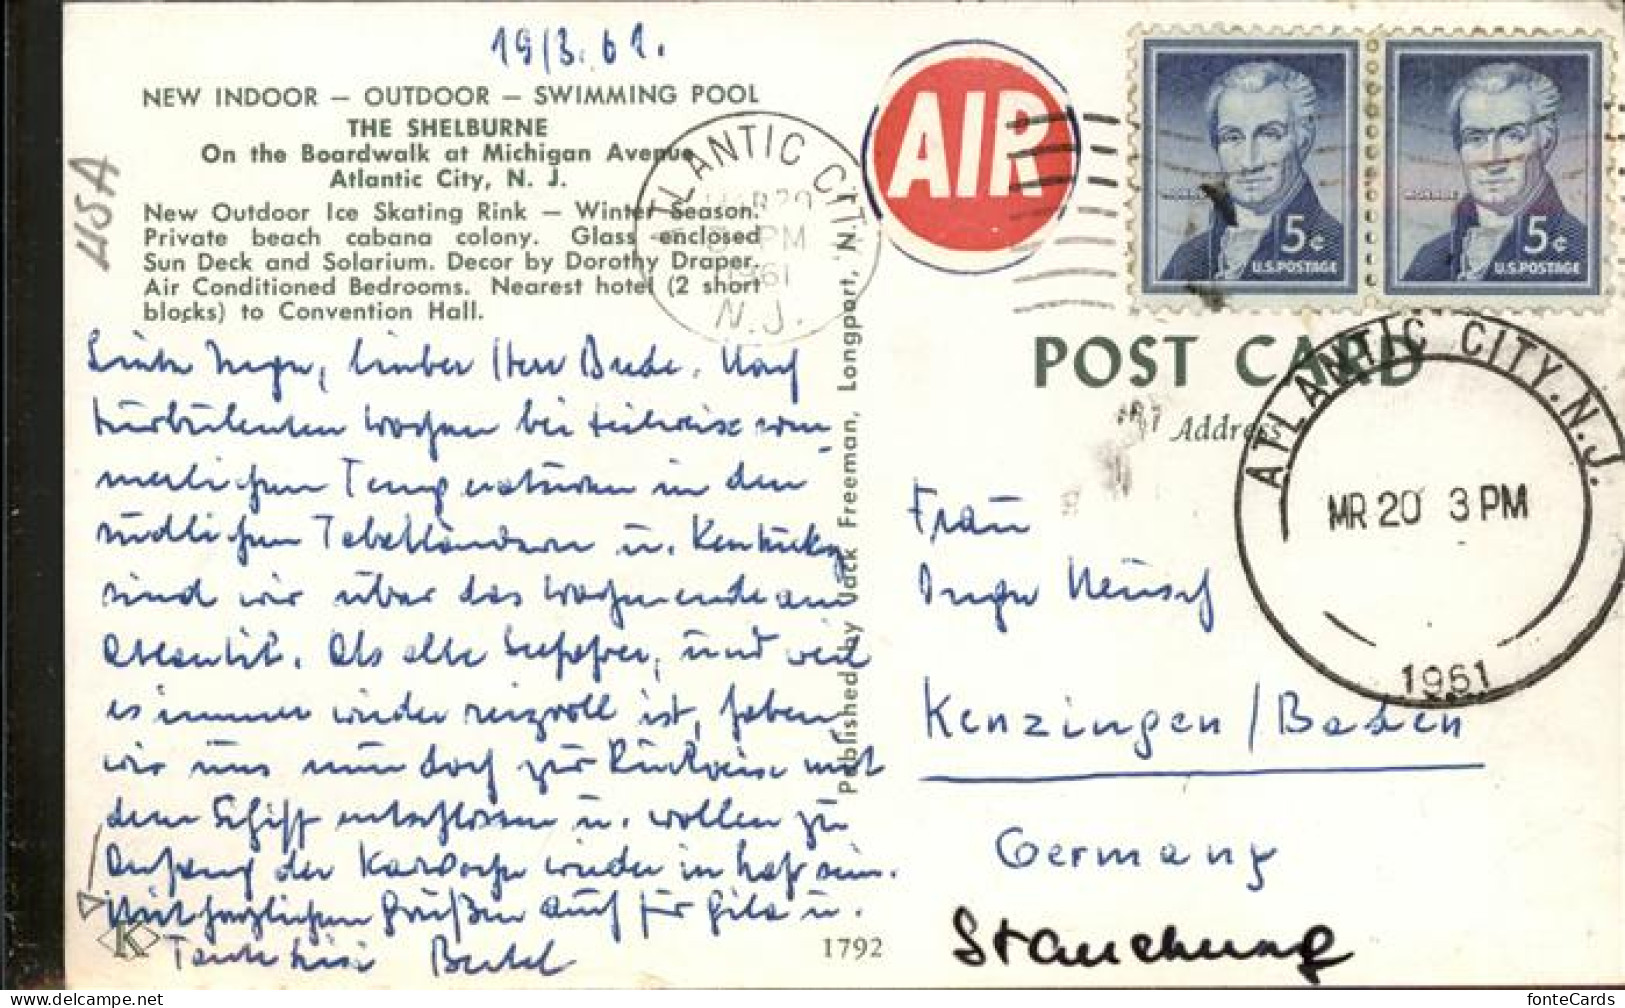 19/3.61.
NEW INDOOR — OUTDOOR — SWIMMING POOL
THE SHELBURNE
On the Boardwalk at Michigan Avenue
Atlantic City, N. J.
New Outdoor Ice Skating Rink — Winter Season.
Private beach cabana colony. Glass enclosed
Sun Deck and Solarium. Decor by Dorothy Draper.
Air Conditioned Bedrooms. Nearest hotel (2 short
blocks) to Convention Hall.
USA
Liebe Inge, lieber Herr Bude. Nach
turbulenten Wochen bei teilweise som-
merlichen Temperaturen in den
südlichen u. Kentucky
sind wir über das Wochenende am
Atlantik. Als alte Seefahrer, und weil
es immer wieder reizvoll ist, haben
wir uns nun doch zur Rückreise mit
dem Schiff entschlossen u. wollen zu
Anfang der Karwoche wieder in sein.
Mit herzlichen Grüßen auch für u.
Tante
K
1792
Published by Jack Freeman, Longport, N.J.
ATLANTIC CITY
MAR 20
PM
1961
N.J.
AIR
5¢
U.S.POSTAGE
5¢
U.S.POSTAGE
POST CARD
Address
ATLANTIC CITY. N.J.
MR 20 3 PM
1961
Frau
Inge Neusch
Kenzingen/Baden
Germany
Stauchung
fonteCards